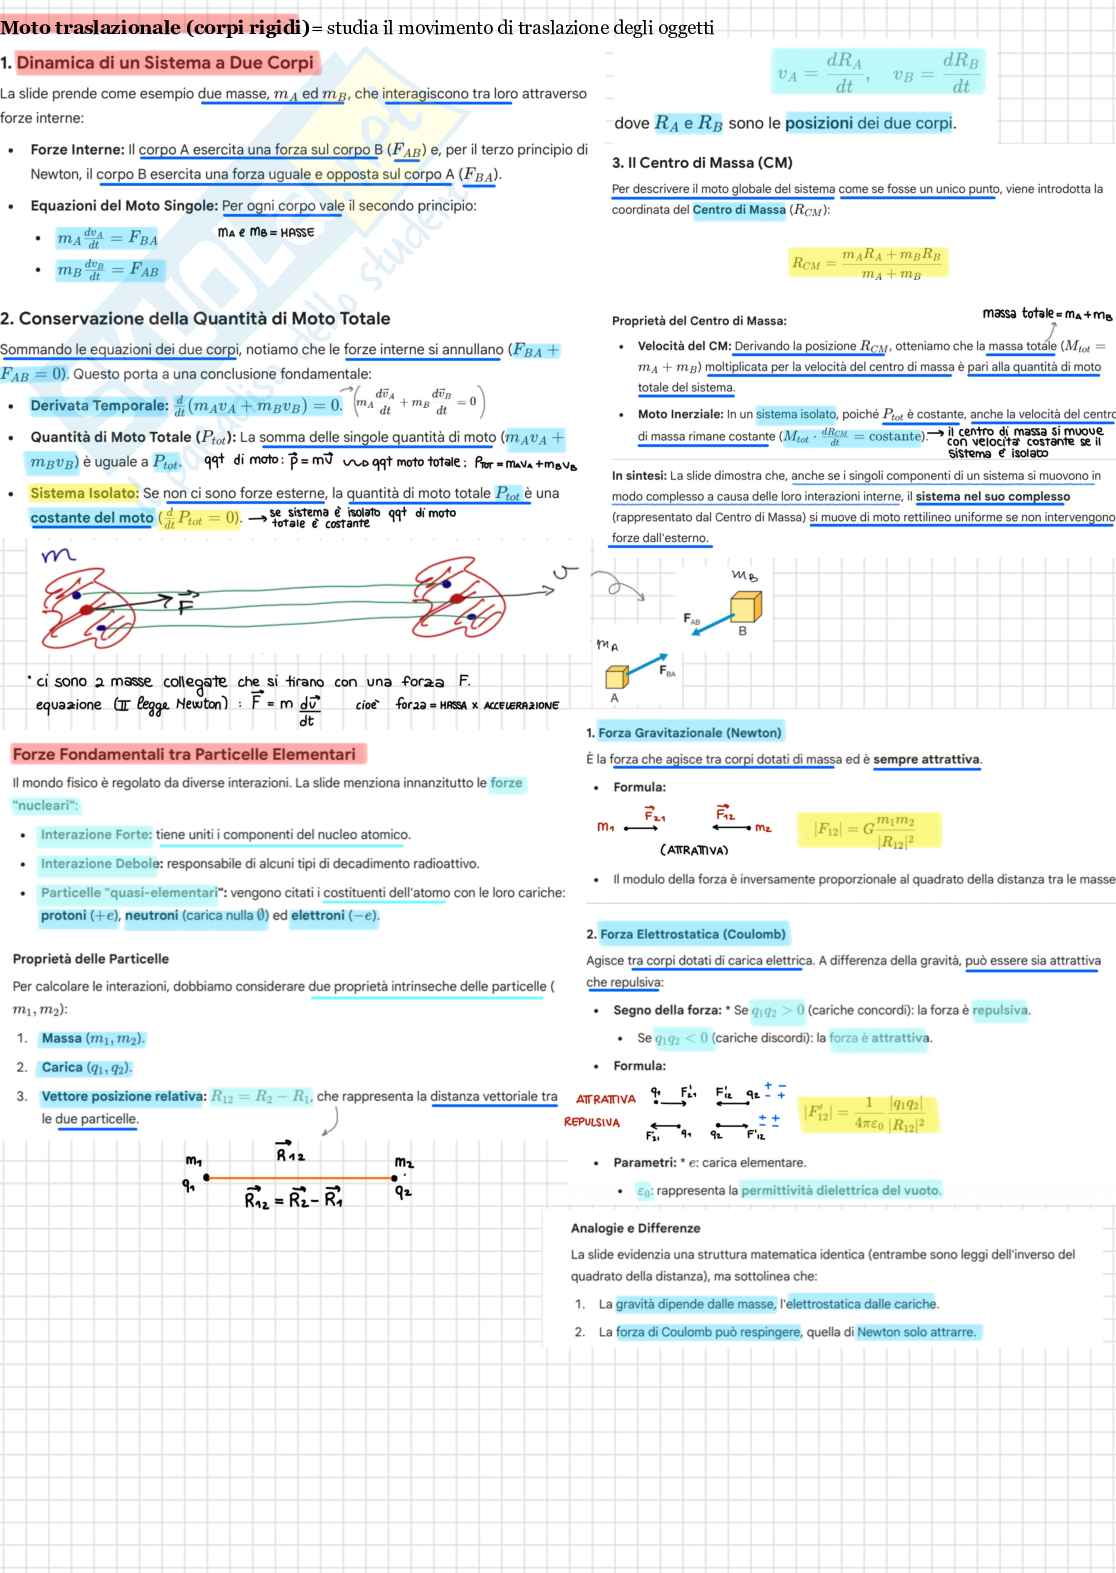 Moto traslazionale (corpi rigidi)= studia il movimento di traslazione degli oggetti
1. Dinamica di un Sistema a Due Corpi
La slide prende come esempio due masse, m_A ed m_B, che interagiscono tra loro attraverso
forze interne:
• Forze Interne: Il corpo A esercita una forza sul corpo B (F_AB) e, per il terzo principio di
Newton, il corpo B esercita una forza uguale e opposta sul corpo A (F_BA).
• Equazioni del Moto Singole: Per ogni corpo vale il secondo principio:
• m_A dv_A/dt = F_BA
mA e mB = MASSE
• m_B dv_B/dt = F_AB
2. Conservazione della Quantità di Moto Totale
Sommando le equazioni dei due corpi, notiamo che le forze interne si annullano (F_BA +
F_AB = 0). Questo porta a una conclusione fondamentale:
• Derivata Temporale: d/dt (m_A v_A + m_B v_B) = 0. (m_A dv⃗_A/dt + m_B dv⃗_B/dt = 0)
• Quantità di Moto Totale (P_tot): La somma delle singole quantità di moto (m_A v_A +
m_B v_B) è uguale a P_tot. qqt di moto: p⃗ = mv⃗ ⟿ qqt moto totale: P_TOT = m_A v_A + m_B v_B
• Sistema Isolato: Se non ci sono forze esterne, la quantità di moto totale P_tot è una
costante del moto (d/dt P_tot = 0). → se sistema è isolato qqt di moto
totale è costante
m
F⃗
u
• ci sono 2 masse collegate che si tirano con una forza F.
equazione (II legge Newton) : F⃗ = m dv⃗/dt cioè forza = MASSA x ACCELERAZIONE
v_A = dR_A/dt, v_B = dR_B/dt
dove R_A e R_B sono le posizioni dei due corpi.
3. Il Centro di Massa (CM)
Per descrivere il moto globale del sistema come se fosse un unico punto, viene introdotta la
coordinata del Centro di Massa (R_CM):
R_CM = (m_A R_A + m_B R_B)/(m_A + m_B)
massa totale = mA + mB
Proprietà del Centro di Massa:
• Velocità del CM: Derivando la posizione R_CM, otteniamo che la massa totale (M_tot =
m_A + m_B) moltiplicata per la velocità del centro di massa è pari alla quantità di moto
totale del sistema.
• Moto Inerziale: In un sistema isolato, poiché P_tot è costante, anche la velocità del centro
di massa rimane costante (M_tot · dR_CM/dt = costante). → il centro di massa si muove
con velocità costante se il
sistema è isolato
In sintesi: La slide dimostra che, anche se i singoli componenti di un sistema si muovono in
modo complesso a causa delle loro interazioni interne, il sistema nel suo complesso
(rappresentato dal Centro di Massa) si muove di moto rettilineo uniforme se non intervengono
forze dall'esterno.
m_B
F_AB
B
m_A
F_BA
A
Forze Fondamentali tra Particelle Elementari
Il mondo fisico è regolato da diverse interazioni. La slide menziona innanzitutto le forze
"nucleari":
• Interazione Forte: tiene uniti i componenti del nucleo atomico.
• Interazione Debole: responsabile di alcuni tipi di decadimento radioattivo.
• Particelle "quasi-elementari": vengono citati i costituenti dell'atomo con le loro cariche:
protoni (+e), neutroni (carica nulla ∅) ed elettroni (−e).
Proprietà delle Particelle
Per calcolare le interazioni, dobbiamo considerare due proprietà intrinseche delle particelle (
m_1, m_2):
1. Massa (m_1, m_2).
2. Carica (q_1, q_2).
3. Vettore posizione relativa: R_12 = R_2 − R_1, che rappresenta la distanza vettoriale tra
le due particelle.
m1 R⃗12 m2
q1 R⃗12 = R⃗2 − R⃗1 q2
1. Forza Gravitazionale (Newton)
È la forza che agisce tra corpi dotati di massa ed è sempre attrattiva.
• Formula:
m1 F⃗21 F⃗12 m2
(ATTRATTIVA)
|F_12| = G m_1 m_2/|R_12|²
• Il modulo della forza è inversamente proporzionale al quadrato della distanza tra le masse
2. Forza Elettrostatica (Coulomb)
Agisce tra corpi dotati di carica elettrica. A differenza della gravità, può essere sia attrattiva
che repulsiva:
• Segno della forza: * Se q_1q_2 > 0 (cariche concordi): la forza è repulsiva.
• Se q_1q_2 < 0 (cariche discordi): la forza è attrattiva.
• Formula:
ATTRATTIVA q1 F'21 F'12 q2 + − − +
REPULSIVA F'21 q1 q2 F'12 + + − −
|F'_12| = 1/(4πε_0) |q_1q_2|/|R_12|²
• Parametri: * e: carica elementare.
• ε_0: rappresenta la permittività dielettrica del vuoto.
Analogie e Differenze
La slide evidenzia una struttura matematica identica (entrambe sono leggi dell'inverso del
quadrato della distanza), ma sottolinea che:
1. La gravità dipende dalle masse, l'elettrostatica dalle cariche.
2. La forza di Coulomb può respingere, quella di Newton solo attrarre.